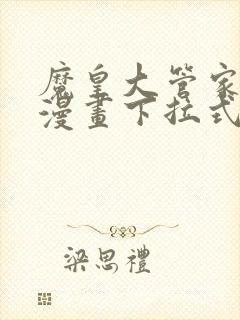 魔皇大管家
漫畫下拉式
梁思禮